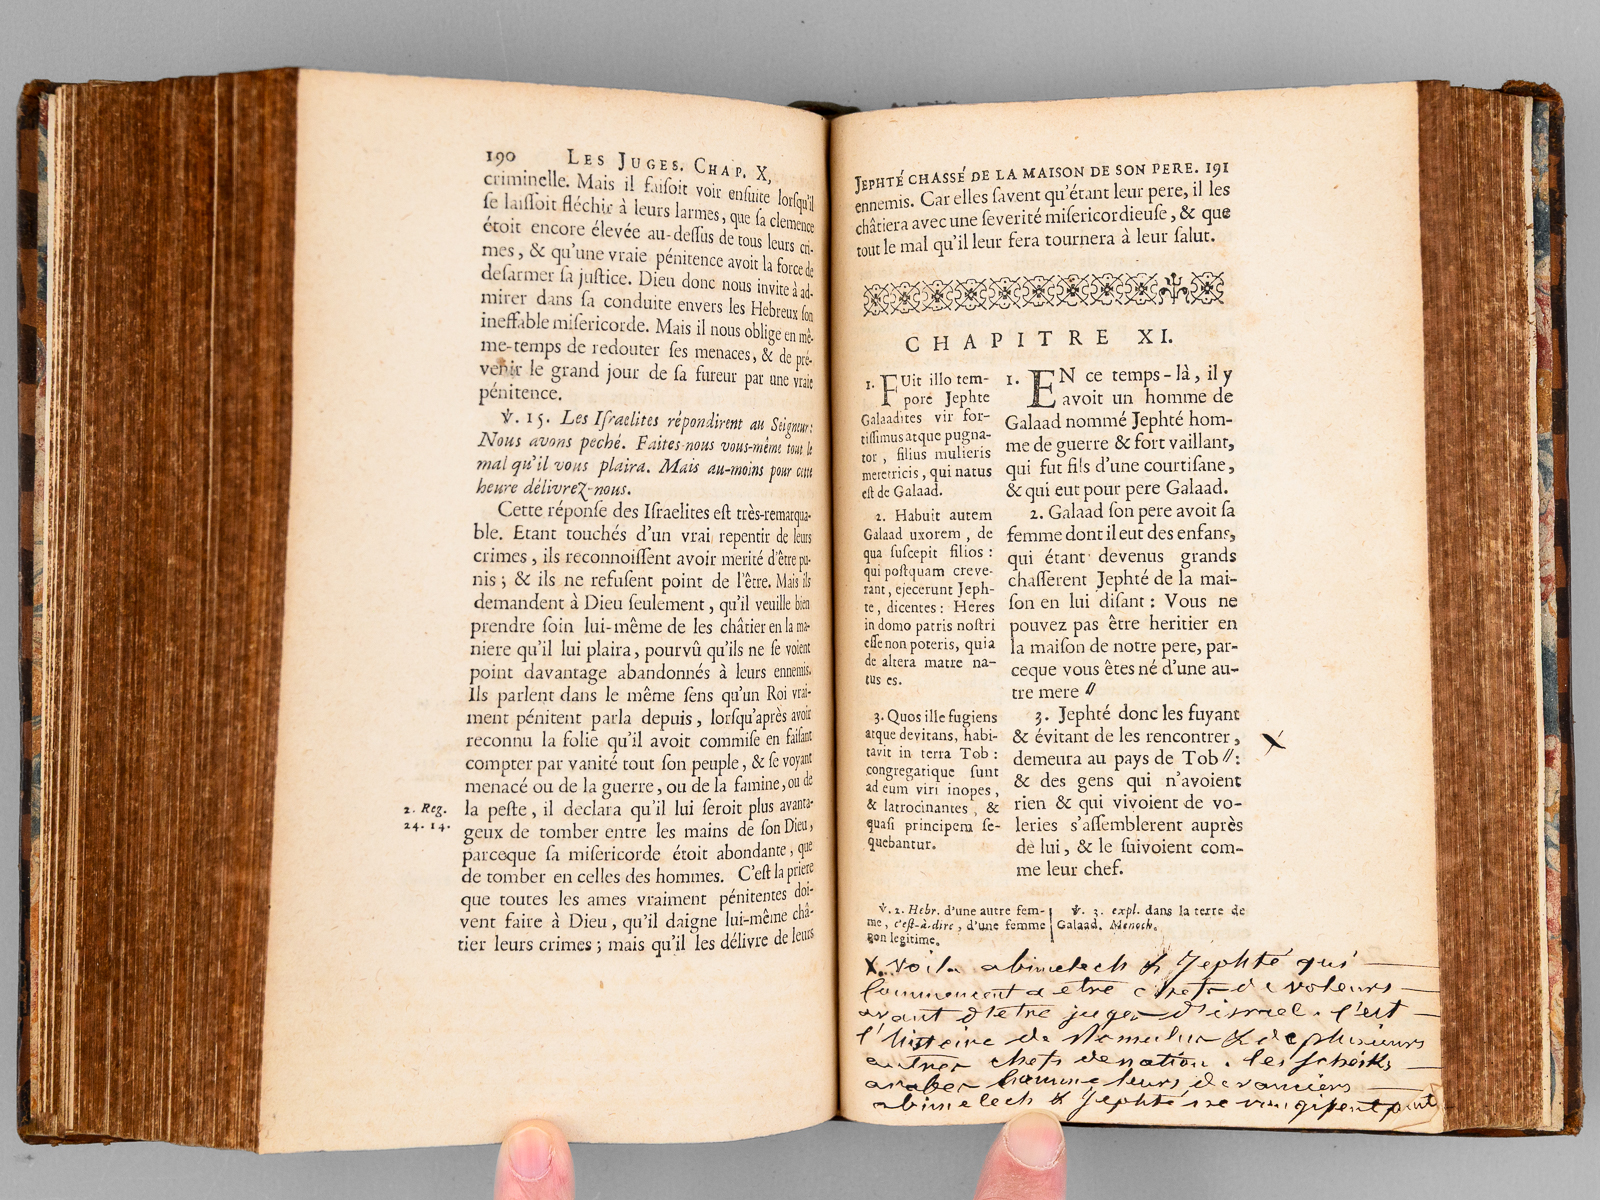 190 LES JUGES. CHAP. X,
criminelle. Mais il faiſoit voir enſuite lorſqu'il
ſe laiſſoit fléchir à leurs larmes, que ſa clemence
étoit encore élevée au-deſſus de tous leurs cri-
mes, & qu'une vraie pénitence avoit la force de
deſarmer ſa juſtice. Dieu donc nous invite à ad-
mirer dans ſa conduite envers les Hebreux ſon
ineffable miſericorde. Mais il nous oblige en mê-
me-temps de redouter ſes menaces, & de pré-
venir le grand jour de ſa fureur par une vraie
pénitence.
℣. 15. Les Iſraelites répondirent au Seigneur:
Nous avons peché. Faites-nous vous-même tout le
mal qu'il vous plaira. Mais au-moins pour cette
heure délivrez-nous.
Cette réponſe des Iſraelites eſt très-remarqua-
ble. Etant touchés d'un vrai repentir de leurs
crimes, ils reconnoiſſent avoir merité d'être pu-
nis; & ils ne refuſent point de l'être. Mais ils
demandent à Dieu ſeulement, qu'il veuille bien
prendre ſoin lui-même de les châtier en la ma-
niere qu'il lui plaira, pourvû qu'ils ne ſe voient
point davantage abandonnés à leurs ennemis.
Ils parlent dans le même ſens qu'un Roi vrai-
ment pénitent parla depuis, lorſqu'après avoir
reconnu la folie qu'il avoit commiſe en faiſant
compter par vanité tout ſon peuple, & ſe voyant
menacé ou de la guerre, ou de la famine, ou de
2. Reg.
24. 14.
la peſte, il declara qu'il lui ſeroit plus avanta-
geux de tomber entre les mains de ſon Dieu,
parceque ſa miſericorde étoit abondante, que
de tomber en celles des hommes. C'eſt la priere
que toutes les ames vraiment pénitentes doi-
vent faire à Dieu, qu'il daigne lui-même châ-
tier leurs crimes; mais qu'il les délivre de leurs
JEPHTÉ CHASSÉ DE LA MAISON DE SON PERE. 191
ennemis. Car elles ſavent qu'étant leur pere, il les
châtiera avec une ſeverité miſericordieuſe, & que
tout le mal qu'il leur fera tournera à leur ſalut.
CHAPITRE XI.
1. FUit illo tem-
pore Jephte
Galaadites vir for-
tiſſimus atque pugna-
tor, filius mulieris
meretricis, qui natus
eſt de Galaad.
2. Habuit autem
Galaad uxorem, de
qua ſuſcepit filios:
qui poſtquam creve-
rant, ejecerunt Jeph-
te, dicentes: Heres
in domo patris noſtri
eſſe non poteris, quia
de altera matre na-
tus es.
3. Quos ille fugiens
atque devitans, habi-
tavit in terra Tob:
congregatique ſunt
ad eum viri inopes,
& latrocinantes, &
quaſi principem ſe-
quebantur.
1. EN ce temps-là, il y
avoit un homme de
Galaad nommé Jephté hom-
me de guerre & fort vaillant,
qui fut fils d'une courtiſane,
& qui eut pour pere Galaad.
2. Galaad ſon pere avoit ſa
femme dont il eut des enfans,
qui étant devenus grands
chaſſerent Jephté de la mai-
ſon en lui diſant: Vous ne
pouvez pas être heritier en
la maiſon de notre pere, par-
ceque vous êtes né d'une au-
tre mere //
3. Jephté donc les fuyant
& évitant de les rencontrer,
demeura au pays de Tob //:
& des gens qui n'avoient
rien & qui vivoient de vo-
leries s'aſſemblerent auprès
de lui, & le ſuivoient com-
me leur chef.
X
℣. 2. Hebr. d'une autre fem-
me, c'eſt-à-dire, d'une femme
non legitime.
℣. 3. expl. dans la terre de
Galaad. Menoch.
X. voila abimelech & Jephté qui
commencent a etre chefs de voleurs
avant d'etre juges d'israel. c'est
l'histoire de Romulus & de plusieurs
autres chefs de nation. les scheiks
arabes comme leurs devanciers
abimelech & Jephté ne rougissent point